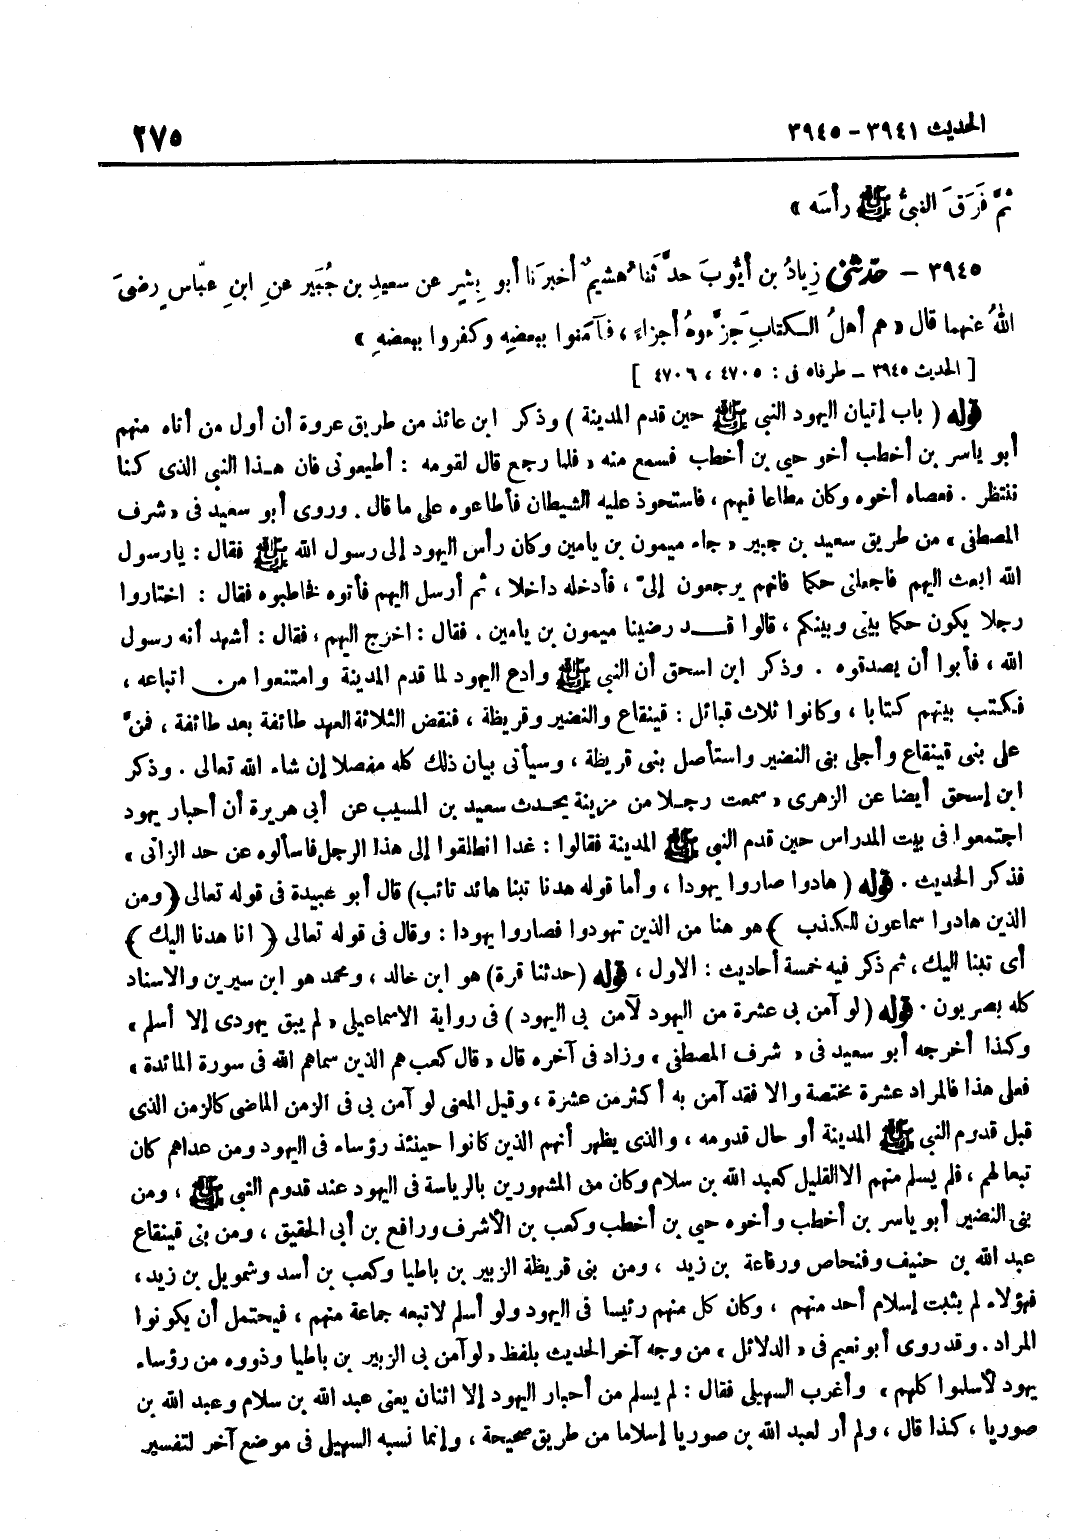 الحديث ٣٩٤١ - ٣٩٤٥ ٢٧٥
ثمَّ فَرَقَ النبىُّ ﷺ رأسَه »
٣٩٤٥ - حدّثنى زِيادُ بن أيُّوبَ حدَّثنا هُشيمٌ أخبرَنا أبو بِشرٍ عن سعيدِ بن جُبَيرٍ عنِ ابنِ عبّاسٍ رضىَ
اللهُ عنهما قال « هم أهلُ الكتابِ جزَّءوهُ أجزاءً ، فآمَنوا ببعضِهِ وكفروا ببعضهِ »
[ الحديث ٣٩٤٥ - طرفاه فى : ٤٧٠٥ ، ٤٧٠٦ ]
قوله ( باب إتيان اليهود النبي ﷺ حين قدم المدينة ) وذكر ابن عائذ من طريق عروة أن أول من أتاه منهم
أبو ياسر بن أخطب أخو حي بن أخطب فسمع منه « فلما رجع قال لقومه : أطيعونى فان هـذا النبي الذى كـنا
ننتظر . فعصاه أخوه وكان مطاعا فيهم ، فاستحوذ عليه الشيطان فأطاعوه على ما قال . وروى أبو سعيد فى « شرف
المصطفى » من طريق سعيد بن جبير « جاء ميمون بن يامين وكان رأس اليهود إلى رسول الله ﷺ فقال : يارسول
الله ابعث اليهم فاجعلنى حكما فانهم يرجعون إلىّ ، فأدخله داخلا ، ثم أرسل اليهم فأتوه فخاطبوه فقال : اختاروا
رجلا يكون حكما بينى وبينكم ، قالوا قـــد رضينا ميمون بن يامين . فقال : اخرج اليهم ، فقال : أشهد أنه رسول
الله ، فأبوا أن يصدقوه . وذكر ابن اسحق أن النبي ﷺ وادع اليهود لما قدم المدينة وامتنعوا من اتباعه ،
فـكـتب بينهم كـتابا ، وكانوا ثلاث قبائل : قينقاع والنضير وقريظة ، فنقض الثلاثة العهد طائفة بعد طائفة ، فمنّ
على بنى قينقاع وأجلى بنى النضير واستأصل بنى قريظة ، وسيأتى بيان ذلك كله مفصلا إن شاء الله تعالى . وذكر
ابن إسحق أيضا عن الزهرى « سمعت رجـلا من مزينة يحـدث سعيد بن المسيب عن أبى هريرة أن أحبار يهود
اجتمعوا فى بيت المدراس حين قدم النبي ﷺ المدينة فقالوا : غدا انطلقوا إلى هذا الرجل فاسألوه عن حد الزانى »
فذكر الحديث . قوله ( هادوا صاروا يهودا ، وأما قوله هدنا تبنا هائد تائب) قال أبو عبيدة فى قوله تعالى ﴿ ومن
الذين هادوا سماعون للـكـذب ﴾ هو هنا من الذين تهودوا فصاروا يهودا : وقال فى قوله تعالى ﴿ انا هدنا اليك ﴾
أى تبنا اليك ، ثم ذكر فيه خمسة أحاديث : الاول ، قوله (حدثنا قرة) هو ابن خالد ، ومحمد هو ابن سيرين والاسناد
كله بصريون . قوله ( لو آمن بى عشرة من اليهود لآمن بى اليهود ) فى رواية الاسماعيلي « لم يبق يهودى إلا أسلم »
وكـذا أخرجه أبو سعيد فى « شرف المصطفى » وزاد فى آخره قال « قال كعب هم الذين سماهم الله فى سورة المائدة »
فعلى هذا فالمراد عشرة مختصة والا فقد آمن به أكثر من عشرة ، وقيل المعنى لو آمن بى فى الزمن الماضى كالزمن الذى
قبل قدوم النبي ﷺ المدينة أو حال قدومه ، والذى يظهر أنهم الذين كانوا حينئذ رؤساء فى اليهود ومن عداهم كان
تبعا لهم ، فلم يسلم منهم الا القليل كعبد الله بن سلام وكان من المشهورين بالرياسة فى اليهود عند قدوم النبي ﷺ ، ومن
بنى النضير أبو ياسر بن أخطب وأخوه حي بن أخطب وكعب بن الأشرف ورافع بن أبى الحقيق ، ومن بنى قينقاع
عبد الله بن حنيف وفنحاص ورفاعة بن زيد ، ومن بنى قريظة الزبير بن باطيا وكعب بن أسد وشمويل بن زيد ،
فهؤلاء لم يثبت إسلام أحد منهم ، وكان كل منهم رئيسا فى اليهود ولو أسلم لاتبعه جماعة منهم ، فيحتمل أن يكونوا
المراد . وقد روى أبو نعيم فى « الدلائل » من وجه آخر الحديث بلفظ « لو آمن بى الزبير بن باطيا وذووه من رؤساء
يهود لأسلموا كلهم » وأغرب السهيلى فقال : لم يسلم من أحبار اليهود إلا اثنان يعنى عبد الله بن سلام وعبد الله بن
صوريا ، كـذا قال ، ولم أر لعبد الله بن صوريا إسلاما من طريق صحيحة ، وإنما نسبه السهيلى فى موضع آخر لتفسير